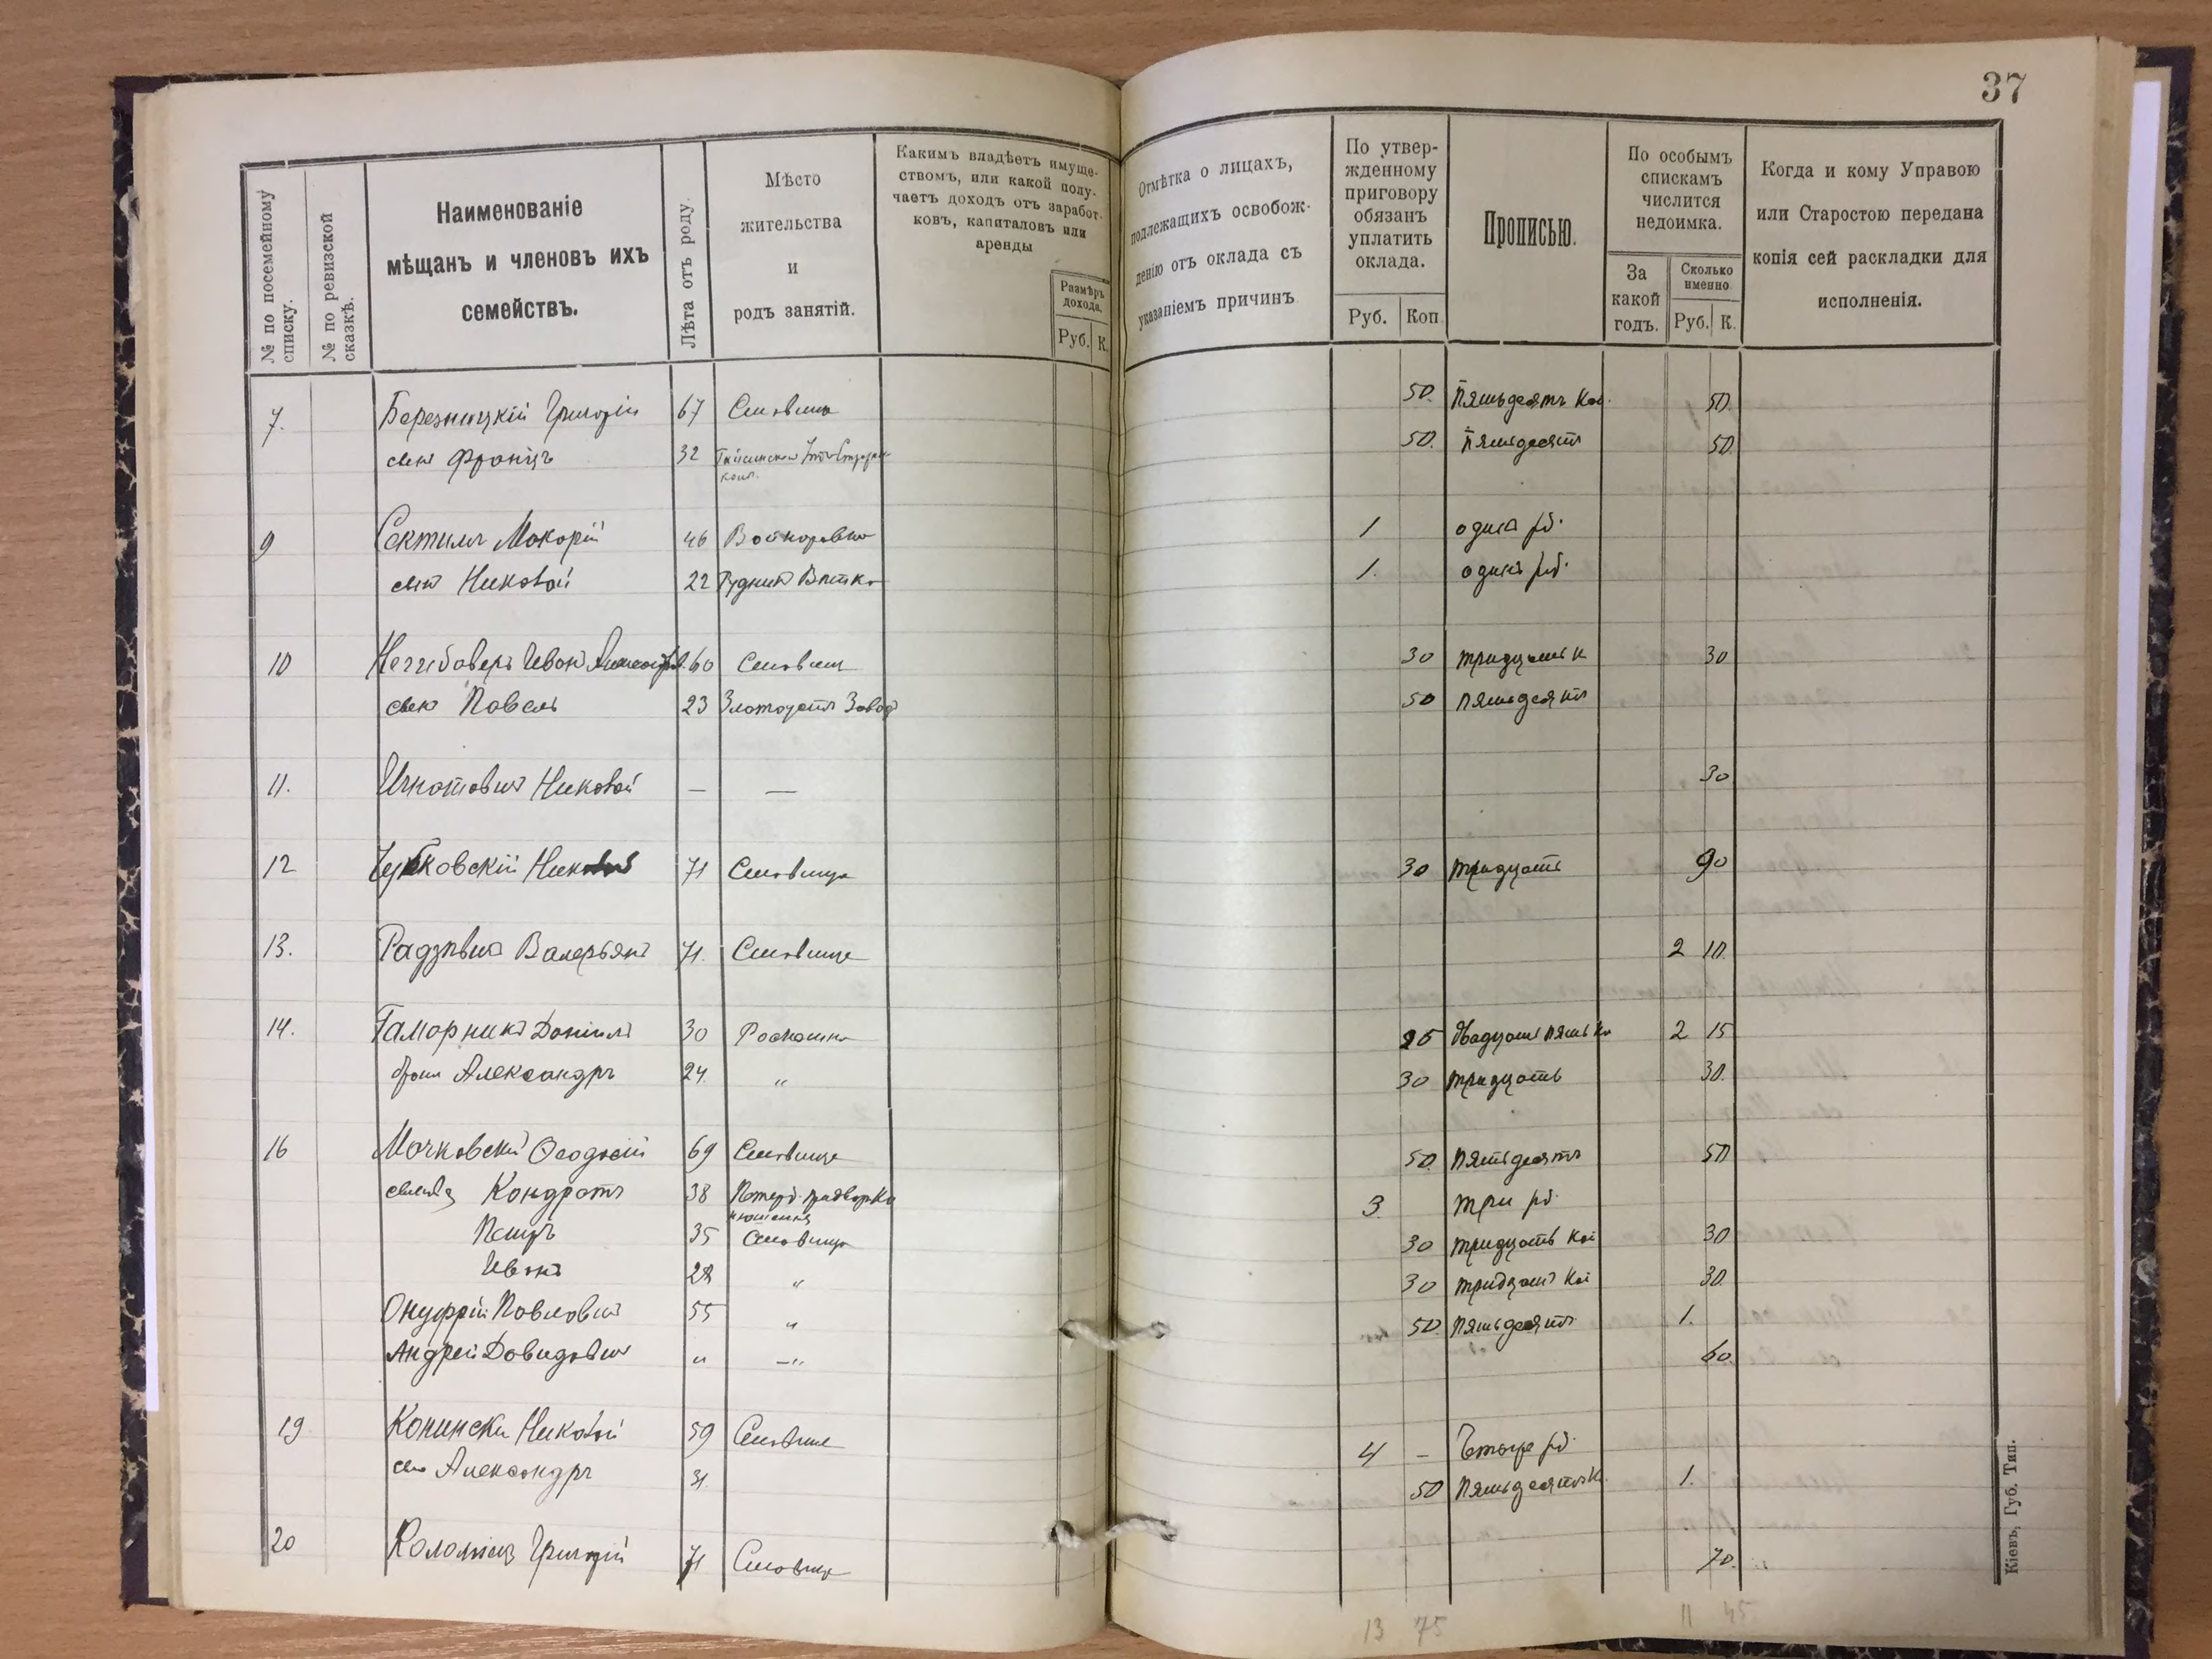 37
№ по посемейному списку.
№ по ревизской сказкѣ.
Наименованіе
мѣщанъ и членовъ ихъ
семействъ.
Лѣта отъ роду.
Мѣсто
жительства
и
родъ занятій.
Какимъ владѣетъ имуще-
ствомъ, или какой полу-
чаетъ доходъ отъ заработ-
ковъ, капиталовъ или
аренды
Размѣръ дохода.
Руб. К.
Отмѣтка о лицахъ,
подлежащихъ освобож-
денію отъ оклада съ
указаніемъ причинъ
По утвер-
жденному
приговору
обязанъ
уплатить
оклада.
Руб. Коп.
Прописью.
По особымъ
спискамъ
числится
недоимка.
За
какой
годъ.
Сколько
именно
Руб. К.
Когда и кому Управою
или Старостою передана
копія сей раскладки для
исполненія.
7. Березницкій Григорій 67 50. Пятьдесятъ Коп. 50.
сынъ Францъ 32 50. Пятьдесятъ 50.
9 Макарій 46 1 одинъ рб.
сынъ Николай 22 1. одинъ рб.
10 Иванъ 60 30 тридцать к 30
сынъ Павелъ 23 Златоустъ Завод 50 пятьдесятъ
11. Игнатовичъ Николай — — 30
12 Николай 71 30 тридцать 90
13. Валерьянъ 71. 2 10.
14. Гамарникъ Даніилъ 30 25 двадцать пять ко 2 15
братъ Александръ 24. „ 30 тридцать 30.
16 Мачковскій Ѳеодосій 69 50. пятьдесятъ 50
сыновья Кондратъ 38 3. три рб.
Петръ 35 30 тридцать коп 30
Иванъ 28 „ 30 тридцать коп 30
Онуфрій Павловичъ 55 „ 50. пятьдесятъ 1.
Андрей Давидовичъ „ —„ 60.
19 Николай 59 4 – Четыре рб.
сынъ Александръ 31. 50 пятьдесятъ к. 1.
20 Григорій 71 70.
13 75 11 45
Кіевъ, Губ. Тип.